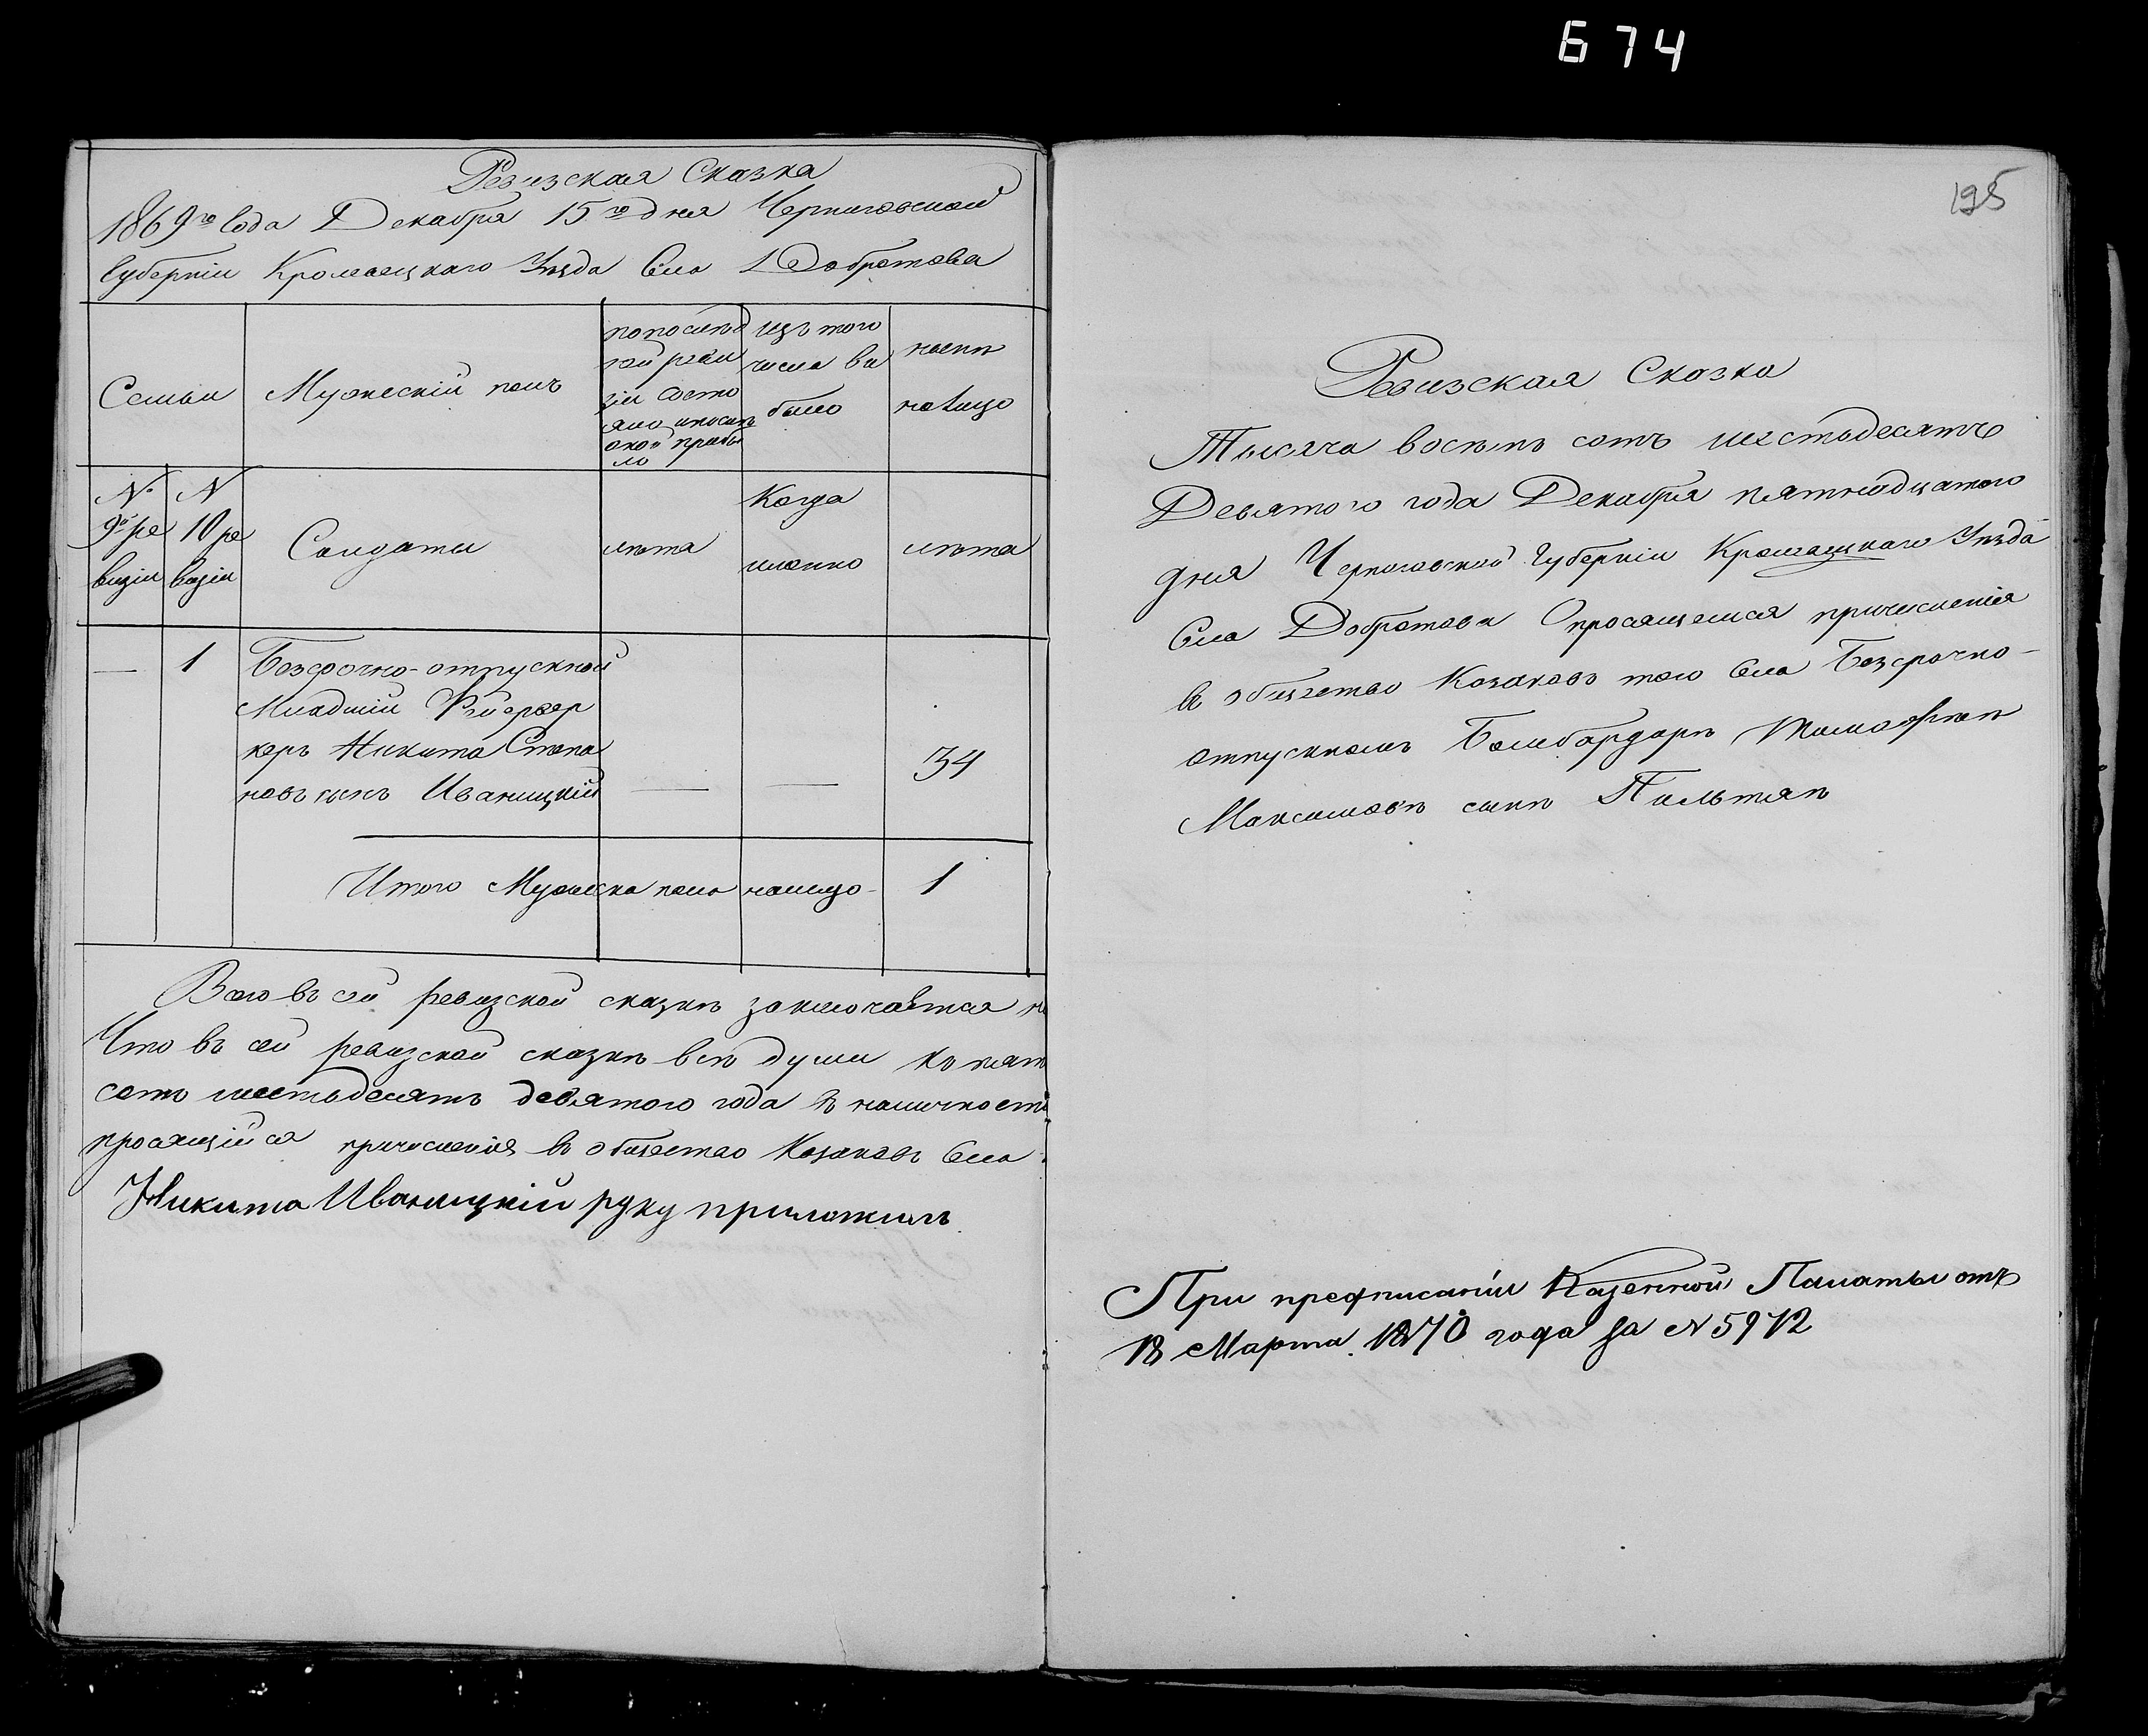 674
Ревизская Сказка
1869го Года Декабря 15го дня Черниговской
Губерніи Кролевецкаго Уѣзда Села Добротова
Семьи
Мужескій полъ
по послѣд
ней реви
зіи состо
яло и послѣ
оной прибы
ло
изъ того
числа вы
было
нынѣ
на лицо
№ 9й ре
визіи
№ 10 ре
визіи
Солдаты
лѣта
Когда
именно
лѣта
— 1
Безсрочно-отпускной
Младшій Фейервер
керъ Никита Степа
новъ сынъ Иваницкій — — 34
Итого Мужеска пола налицо - 1
Всего въ сей ревизской сказкѣ заключается
Что въ сей ревизской сказкѣ всѣ души
сотъ шестьдесятъ девятого года въ наличности
просящійся причисленія въ общество Козаковъ Села
Никита Иваницкій руку приложилъ
195
Ревизская Сказка
Тысяча восемь сотъ шестьдесятъ
Девятого года Декабря пятнадцатого
дня Черниговской Губерніи Кролевецкаго Уѣзда
Села Добротова О просящемся причисленія
въ общество Козаковъ того Села Безсрочно-
отпускномъ Бомбардирѣ Тимофѣѣ
Максимовѣ сынѣ
При предписаніи Казенной Палаты отъ
18 Марта 1870 года за № 5972